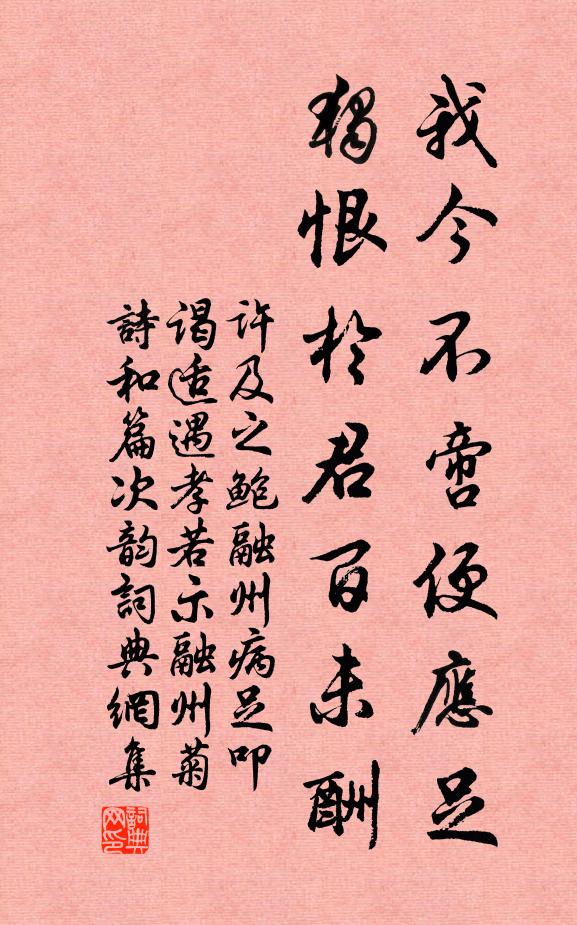 我今不啻便應足
獨恨於君百未酬
許及之鮑融州病足叩
謁适遇孝若示融州菊
詩和篇次韵詞典網集
詞典网印